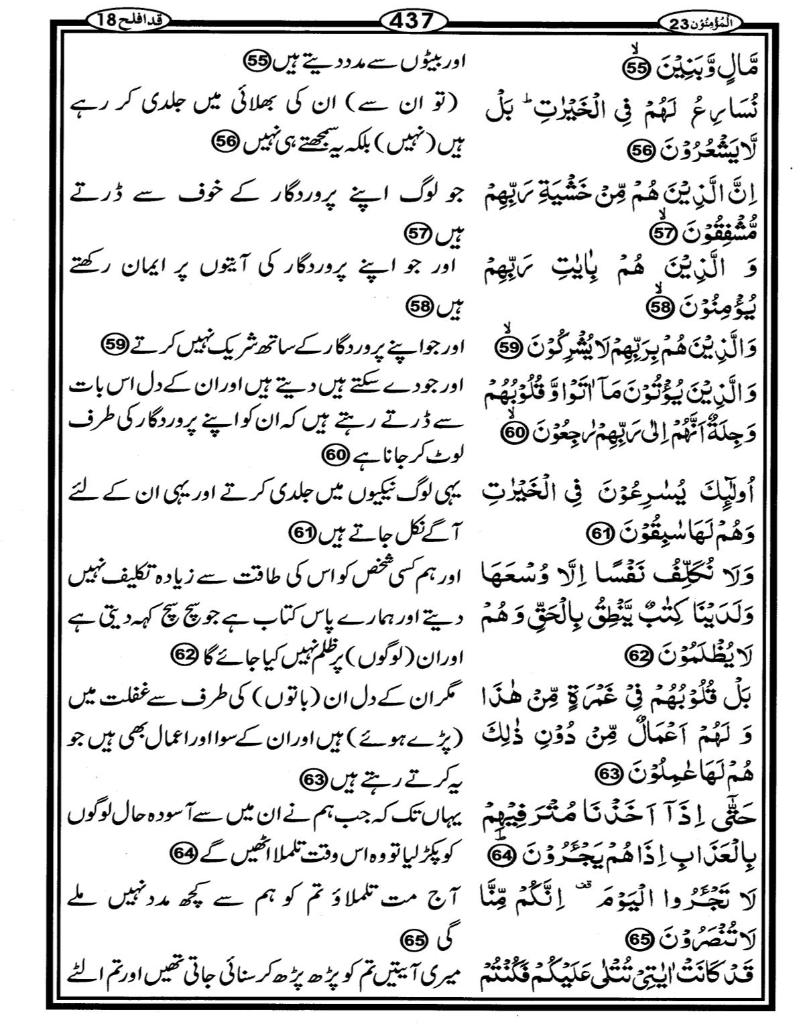 المؤمنون 23
437
قد افلح 18
مَّالٍ وَّبَنِيْنَ ۙ 55
نُسَارِعُ لَهُمْ فِى الْخَيْرٰتِ ؕ بَلْ
لَّا يَشْعُرُوْنَ 56
اِنَّ الَّذِيْنَ هُمْ مِّنْ خَشْيَةِ رَبِّهِمْ
مُّشْفِقُوْنَ ۙ 57
وَ الَّذِيْنَ هُمْ بِاٰيٰتِ رَبِّهِمْ
يُؤْمِنُوْنَ ۙ 58
وَالَّذِيْنَ هُمْ بِرَبِّهِمْ لَا يُشْرِكُوْنَ ۙ 59
وَالَّذِيْنَ يُؤْتُوْنَ مَاۤ اٰتَوْا وَّ قُلُوْبُهُمْ
وَجِلَةٌ اَنَّهُمْ اِلٰى رَبِّهِمْ رٰجِعُوْنَ ۙ 60
اُولٰٓئِكَ يُسٰرِعُوْنَ فِى الْخَيْرٰتِ
وَهُمْ لَهَا سٰبِقُوْنَ 61
وَلَا نُكَلِّفُ نَفْسًا اِلَّا وُسْعَهَا
وَلَدَيْنَا كِتٰبٌ يَّنْطِقُ بِالْحَقِّ وَهُمْ
لَا يُظْلَمُوْنَ 62
بَلْ قُلُوْبُهُمْ فِىْ غَمْرَةٍ مِّنْ هٰذَا
وَ لَهُمْ اَعْمَالٌ مِّنْ دُوْنِ ذٰلِكَ
هُمْ لَهَا عٰمِلُوْنَ 63
حَتّٰٓى اِذَاۤ اَخَذْنَا مُتْرَفِيْهِمْ
بِالْعَذَابِ اِذَا هُمْ يَجْـَٔرُوْنَ ؕ 64
لَا تَجْـَٔرُوا الْيَوْمَ ۚ اِنَّكُمْ مِّنَّا
لَا تُنْصَرُوْنَ 65
قَدْ كَانَتْ اٰيٰتِىْ تُتْلٰى عَلَيْكُمْ فَكُنْتُمْ
اور بیٹوں سے مدد دیتے ہیں 55
(تو ان سے) ان کی بھلائی میں جلدی کر رہے
ہیں (نہیں) بلکہ یہ سمجھتے ہی نہیں 56
جو لوگ اپنے پروردگار کے خوف سے ڈرتے
ہیں 57
اور جو اپنے پروردگار کی آیتوں پر ایمان رکھتے
ہیں 58
اور جو اپنے پروردگار کے ساتھ شریک نہیں کرتے 59
اور جو دے سکتے ہیں دیتے ہیں اور ان کے دل اس بات
سے ڈرتے رہتے ہیں کہ ان کو اپنے پروردگار کی طرف
لوٹ کر جانا ہے 60
یہی لوگ نیکیوں میں جلدی کرتے اور یہی ان کے لئے
آگے نکل جاتے ہیں 61
اور ہم کسی شخص کو اس کی طاقت سے زیادہ تکلیف نہیں
دیتے اور ہمارے پاس کتاب ہے جو سچ سچ کہہ دیتی ہے
اور ان (لوگوں) پر ظلم نہیں کیا جائے گا 62
مگر ان کے دل ان (باتوں) کی طرف سے غفلت میں
(پڑے ہوئے) ہیں اور ان کے سوا اور اعمال بھی ہیں جو
یہ کرتے رہتے ہیں 63
یہاں تک کہ جب ہم نے ان میں سے آسودہ حال لوگوں
کو پکڑ لیا تو وہ اس وقت تلملا اٹھیں گے 64
آج مت تلملاؤ تم کو ہم سے کچھ مدد نہیں ملے
گی 65
میری آیتیں تم کو پڑھ پڑھ کر سنائی جاتی تھیں اور تم الٹے